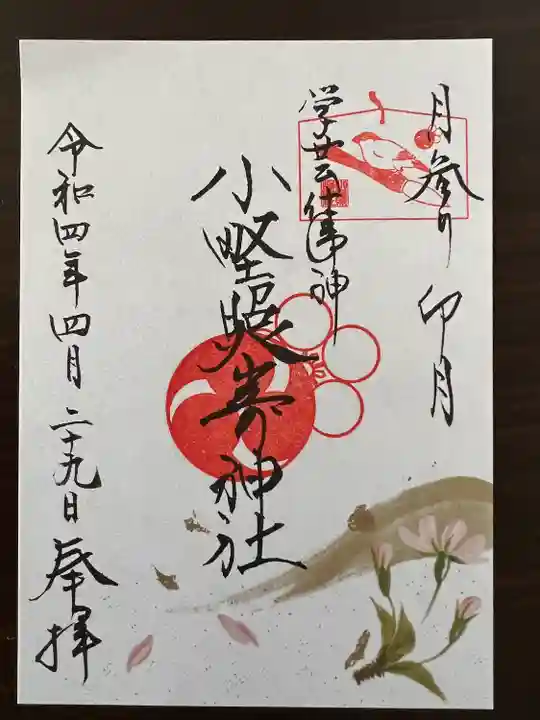 月参り 卯月
学芸の神
小野照崎神社
令和四年四月二十九日 奉拝